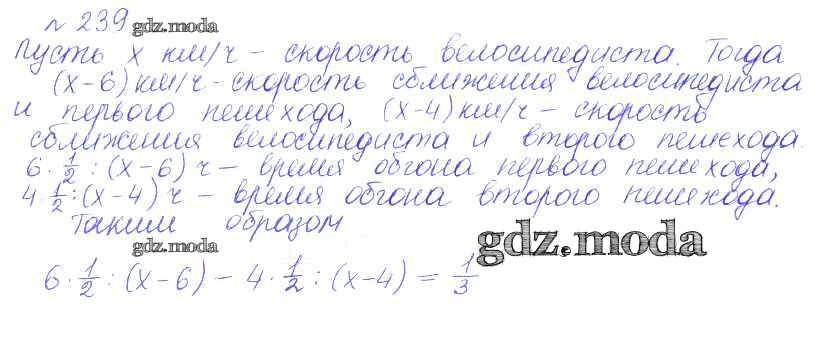 № 239 gdz.moda
Пусть x км/ч – скорость велосипедиста. Тогда
(x–6) км/ч - скорость сближения велосипедиста
и первого пешехода, (x–4) км/ч – скорость
сближения велосипедиста и второго пешехода.
6·1/2 : (x–6) ч – время обгона первого пешехода,
4·1/2 : (x–4) ч – время обгона второго пешехода.
Таким образом
gdz.moda gdz.moda
6·1/2 : (x–6) – 4·1/2 : (x–4) = 1/3